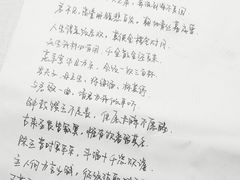 奔流到海不复回
君不见,高堂明镜悲白发,朝如青丝暮成雪
人生得意须尽欢,莫使金樽空对月.
天生我材必有用,千金散尽还复来
烹羊宰牛且为乐,会须一饮三百杯
岑夫子,丹丘生,将进酒,杯莫停
与君歌一曲,请君为我倾耳听
钟鼓馔玉不足贵,但愿长醉不愿醒
古来圣贤皆寂寞,惟有饮者留其名
陈王昔时宴平乐,斗酒十千恣欢谑
主人何为言少钱,径须沽取对